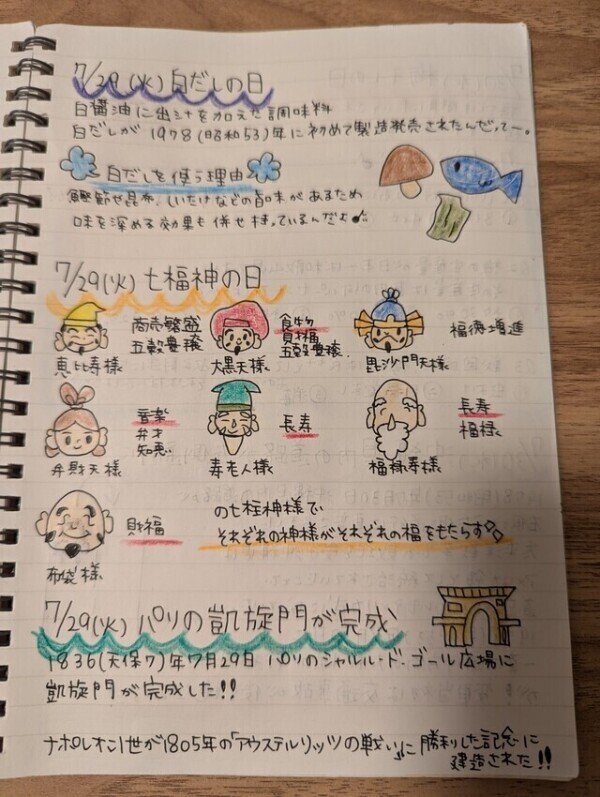 7/29(火) 白だしの日
白醤油に出汁を加えた調味料
白だしが1978(昭和53)年に初めて製造発売されたんだってー。
白だしを使う理由
鰹節や昆布、しいたけなどの旨味があるため
味を深める効果も併せ持っているんだよ♪
7/29(火) 七福神の日
恵比寿様
商売繁盛
五穀豊穣
大黒天様
食物
財福
五穀豊穣
毘沙門天様
福徳増進
弁財天様
音楽
弁才
知恵
寿老人様
長寿
福禄寿様
長寿
福禄
布袋様
財福
の七柱神様で
それぞれの神様がそれぞれの福をもたらす
7/29(火) パリの凱旋門が完成
1836(天保7)年7月29日 パリのシャルル・ド・ゴール広場に
凱旋門が完成した!!
ナポレオン1世が1805年の「アウステルリッツの戦い」に勝利した記念に
建造された!!